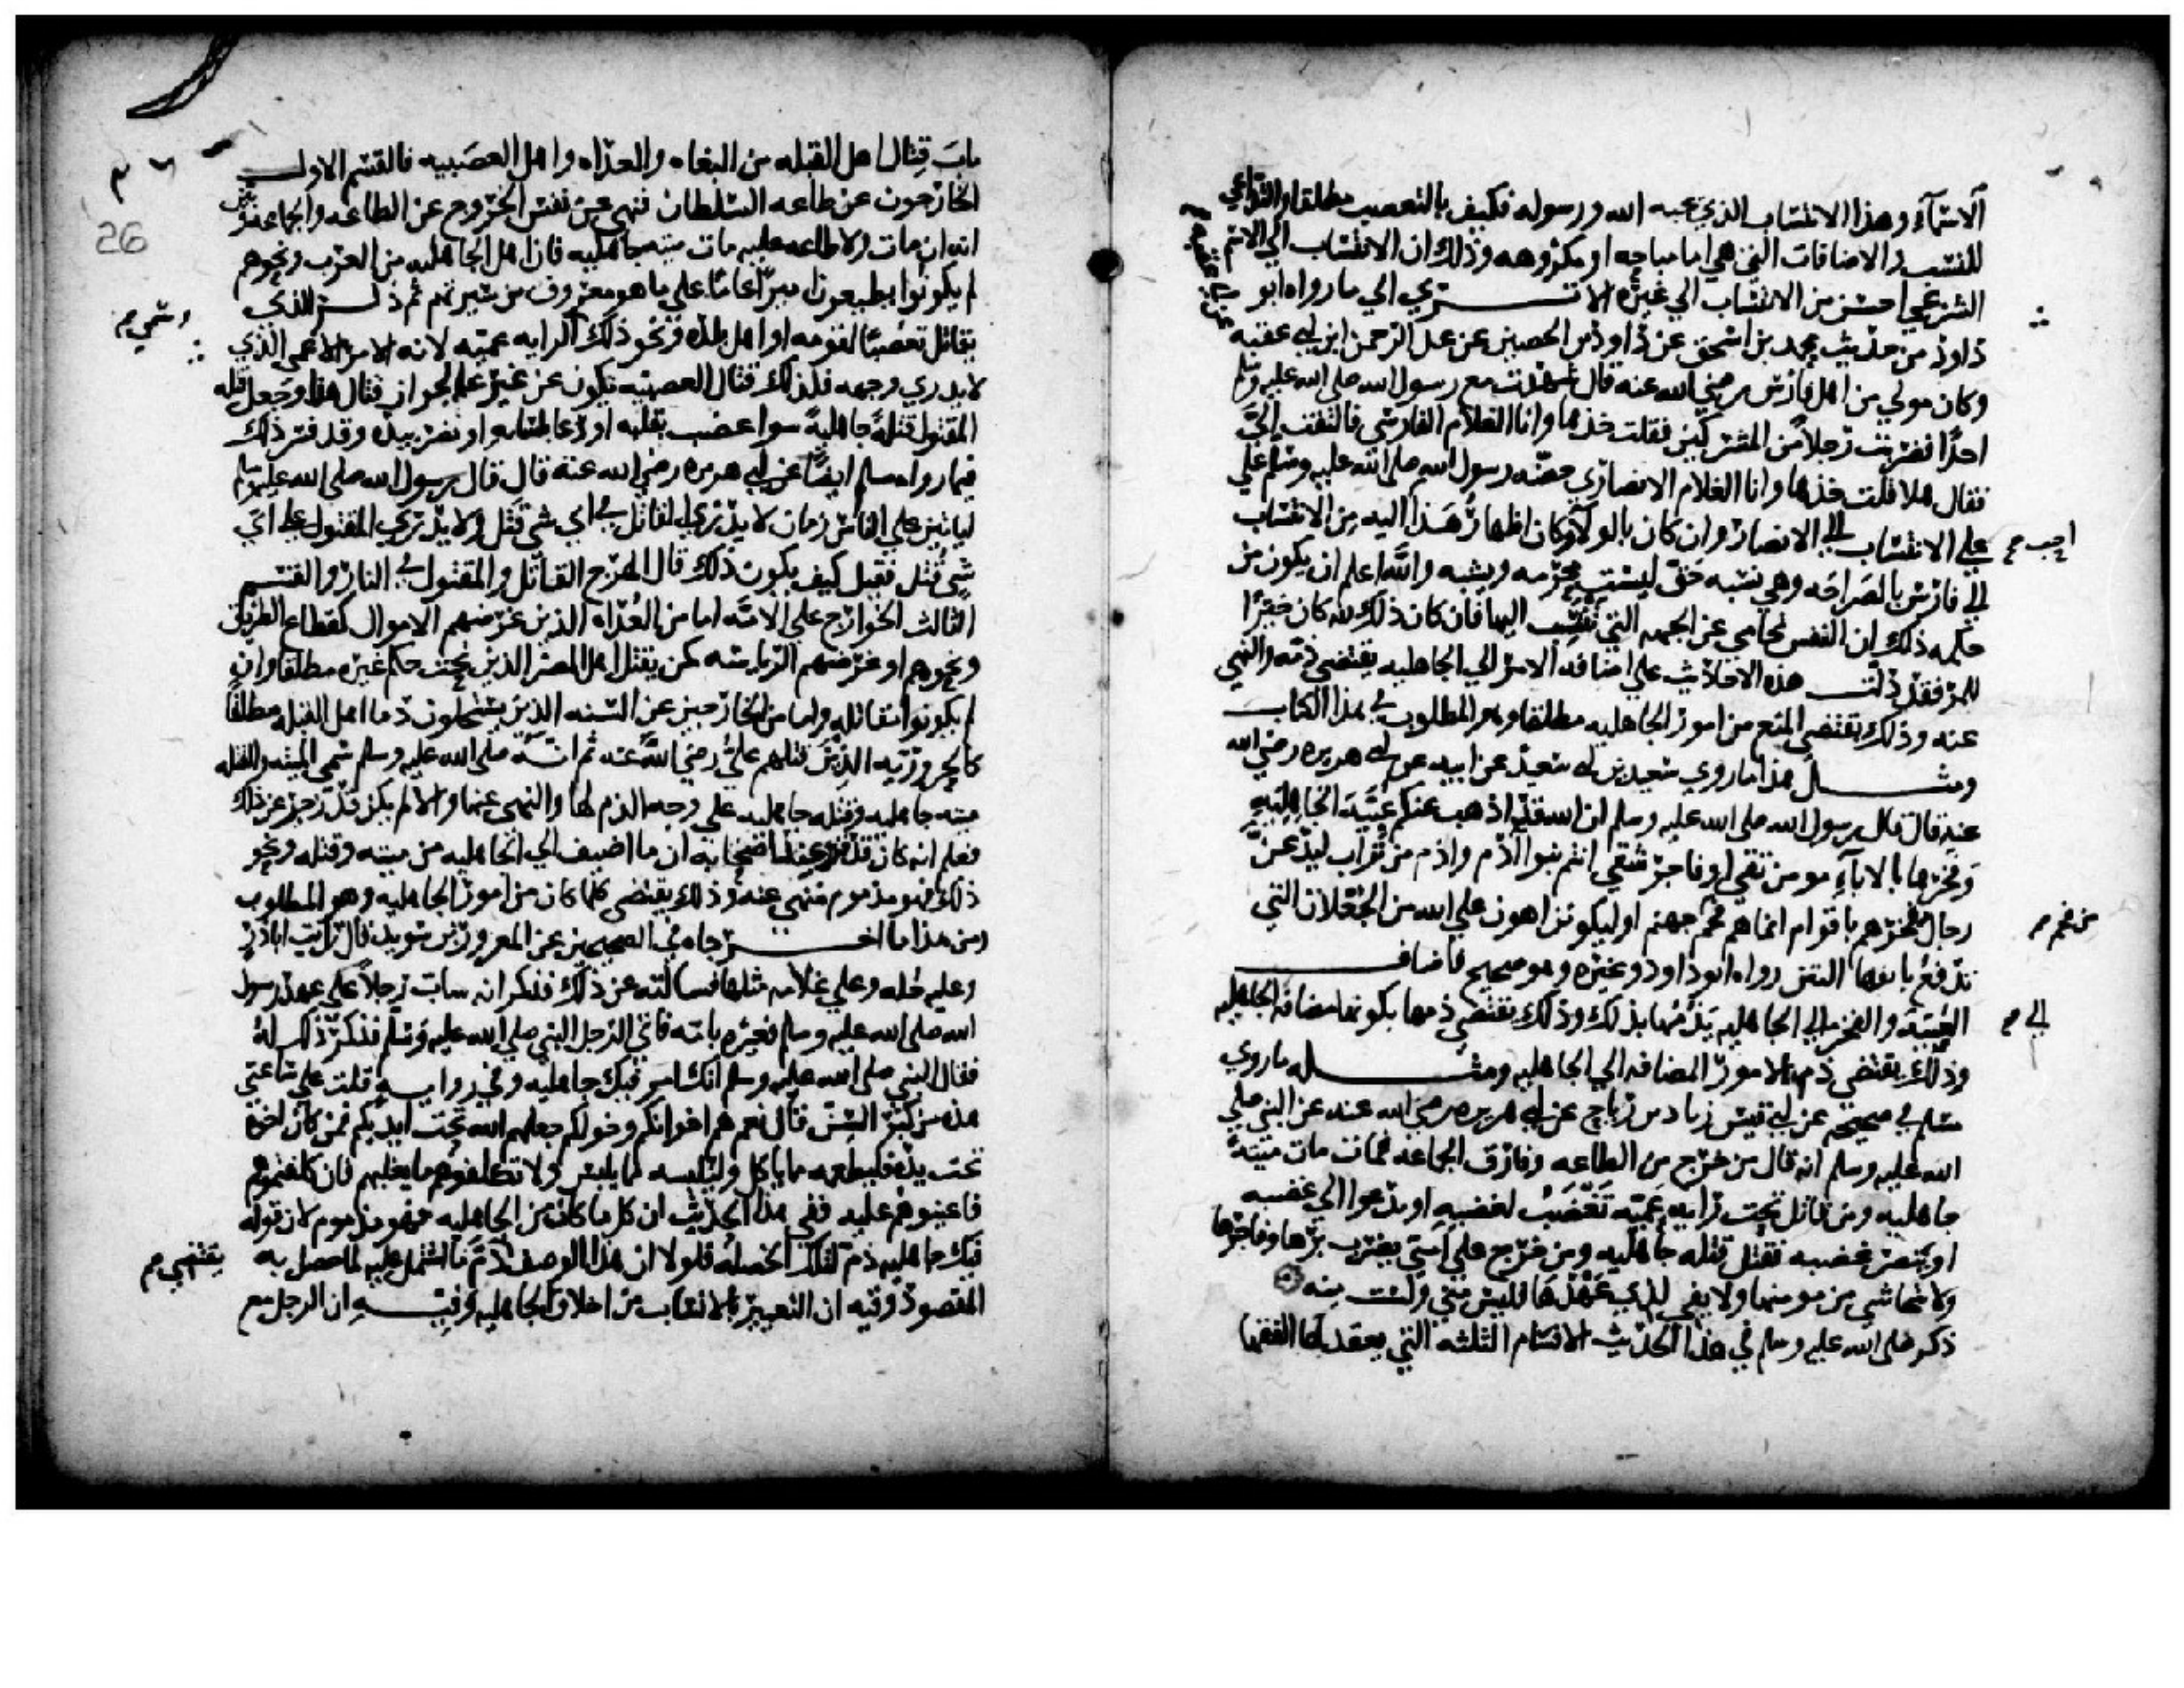 الاسمآء وهذا الانتساب الذي يحبه الله ورسوله فكيف بالتعصب مطلقا والتداعي
للنسب والاضافات التي هي اما مباحه او مكروهه وذلك ان الانتساب الي الاسم
الشرعي احسن من الانتساب الي غيره الا تري الي ما رواه ابو
داود من حديث محمد بن اسحق عن داود بن الحصين عن عبد الرحمن ابن ابي عقبه
وكان مولي من اهل فارس رضي الله عنه قال شهدت مع رسول الله صلي الله عليه وسلم
احدًا فضربت رجلاً من المشركين فقلت خذها وانا الغلام الفارسي فالتفت اليَّ
فقال هلا قلت خذها وانا الغلام الانصاري حضه رسول الله صلى الله عليه وسلم علي
علي الانتساب الي الانصار وان كان بالولآ وكان اظهار هذا اليه من الانتساب
احب
الي فارس بالصراحه وهي نسبه حق ليست محرمه ويشبه والله اعلم ان يكون من
حكمه ذلك ان النفس تحامي عن الجهه التي تنتسب اليها فان كان ذلك لله كان خيرًا
للمر فقد دلت هذه الاحاديث علي اضافه الامر الي الجاهليه يقتضي ذمه والنهي
عنه وذلك يقتضي المنع من امور الجاهليه مطلقا وهو المطلوب في هذا الكتاب
ومثل هذا ما روي سعيد بن ابي سعيد عن ابيه عن ابي هريره رضي الله
عنه قال قال رسول الله صلى الله عليه وسلم ان الله قد اذهب عنكم عبية الجاهلية
وفخرها بالابآء مومن تقي او فاجر شقي انتم بنوا ادم وادم من تراب ليدعنَّ
رجال فخرهم باقوام انما هم فحم جهنم او ليكونن اهون علي الله من الجعلان التي
من فحم
تدفع بانفها النتن رواه ابو داود وغيره وهو صحيح فاضاف
العبية والفخر الي الجاهليه يذمها بذلك وذلك يقتضي ذمها بكونها مضافه الجاهليه
الي
وذلك يقتضي ذم الامور المضافه الي الجاهليه ومثله ما روي
مسلم في صحيحه عن ابي قيس زياد بن رباح عن ابي هريره رضي الله عنه عن النبي صلي
الله عليه وسلم انه قال من خرج من الطاعه وفارق الجماعه فمات مات ميتةً
جاهليه ومن قاتل تحت رايه عميّه تغضب لغضبه او يدعوا الي غضبه
او ينصر غضبه فقتل قتله جاهليه ومن خرج علي امتي يضرب برها وفاجرها
ولا يتحاشي من مومنها ولا يفي لذي عهدها فليس مني ولست منه
ذكر صلى الله عليه وسلم في هذا الحديث الاقسام الثلثه التي يعقد لها الفقها
26
باب قتال اهل القبله من البغاه والعداه واهل العصبيه فالقسم الاول
الخارجون عن طاعه السلطان فنهي عن نفس الخروج عن الطاعه والجماعه وبين
انه ان مات ولا طاعه عليه مات ميته جاهليه فان اهل الجاهليه من العرب ونحوهم
لم يكونوا يطيعون اميرًا عامًا علي ما هو معروف من سيرتهم ثم ذكر الذي
يقاتل تعصبًا لقومه او اهل بلده ونحو ذلك الرايه عميّه لانه الامر الاعمي الذي
وسمي
لا يدري وجهه فكذلك قتال العصبيه يكون عن غير علم بجواز قتال هذا وجعل قتله
المقتول قتلةً جاهليةً سوا غضب بقلبه او دعا بلسانه او ضرب بيده وقد فسر ذلك
فيما رواه مسلم ايضًا عن ابي هريره رضي الله عنه قال قال رسول الله صلى الله عليه وسلم
لياتين علي الناس زمان لا يدري القاتل في اي شي قتل ولا يدري المقتول علي اي
شي قتل فقيل كيف يكون ذلك قال الهرج القاتل والمقتول في النار والقسم
الثالث الخوارج علي الامّه اما من العُداه الذين غرضهم الاموال كقطاع الطريق
ونحوهم او غرضهم الرياسه كمن يقتل اهل المصر الذين تحت حكم غيره مطلقا وان
لم يكونوا مقاتله واما من الخارجين عن السنه الذين يستحلون دما اهل القبله مطلقًا
كالحروريّه الذين قتلهم علي رضي الله عنه ثم انه صلى الله عليه وسلم سمي الميته والقتله
ميته جاهليه وقتله جاهليه علي وجه الذم لها والنهي عنها والا لم يكن قد زجر عن ذلك
فعلم انه كان قد تقرر عند اصحابه ان ما اضيف الي الجاهليه من ميته وقتله ونحو
ذلك فهو مذموم منهي عنه وذلك يقتضي كلما كان من امور الجاهليه وهو المطلوب
ومن هذا ما اخرجاه في الصحيحين عن المعرور بن سويد قال رايت اباذر
وعليه حُله وعلي غلامه مثلها فسالته عن ذلك فذكر انه سابّ رجلاً علي عهد رسول
الله صلى الله عليه وسلم فعيره بامه فاتي الرجل النبي صلى الله عليه وسلم فذكر ذلك له
فقال النبي صلى الله عليه وسلم انك امر فيك جاهليه وفي روايه قلت علي ساعتي
هذه من كبر السن قال نعم هم اخوانكم وخولكم جعلهم الله تحت ايديكم فمن كان اخوه
تحت يده فليطعمه مما ياكل وليلبسه مما يلبس ولا تكلفوهم ما يغلبهم فان كلفتموهم
فاعينوهم عليه ففي هذا الحديث ان كل ما كان من الجاهليه فهو مذموم لان قوله
فيك جاهليه ذم لتلك الخصله فلولا ان هذا الوصف ذمّ ما اشتمل عليه لما حصل به
يقتضي
المقصود وفيه ان التعيير بالانساب من اخلاق الجاهليه وفيه ان الرجل مع